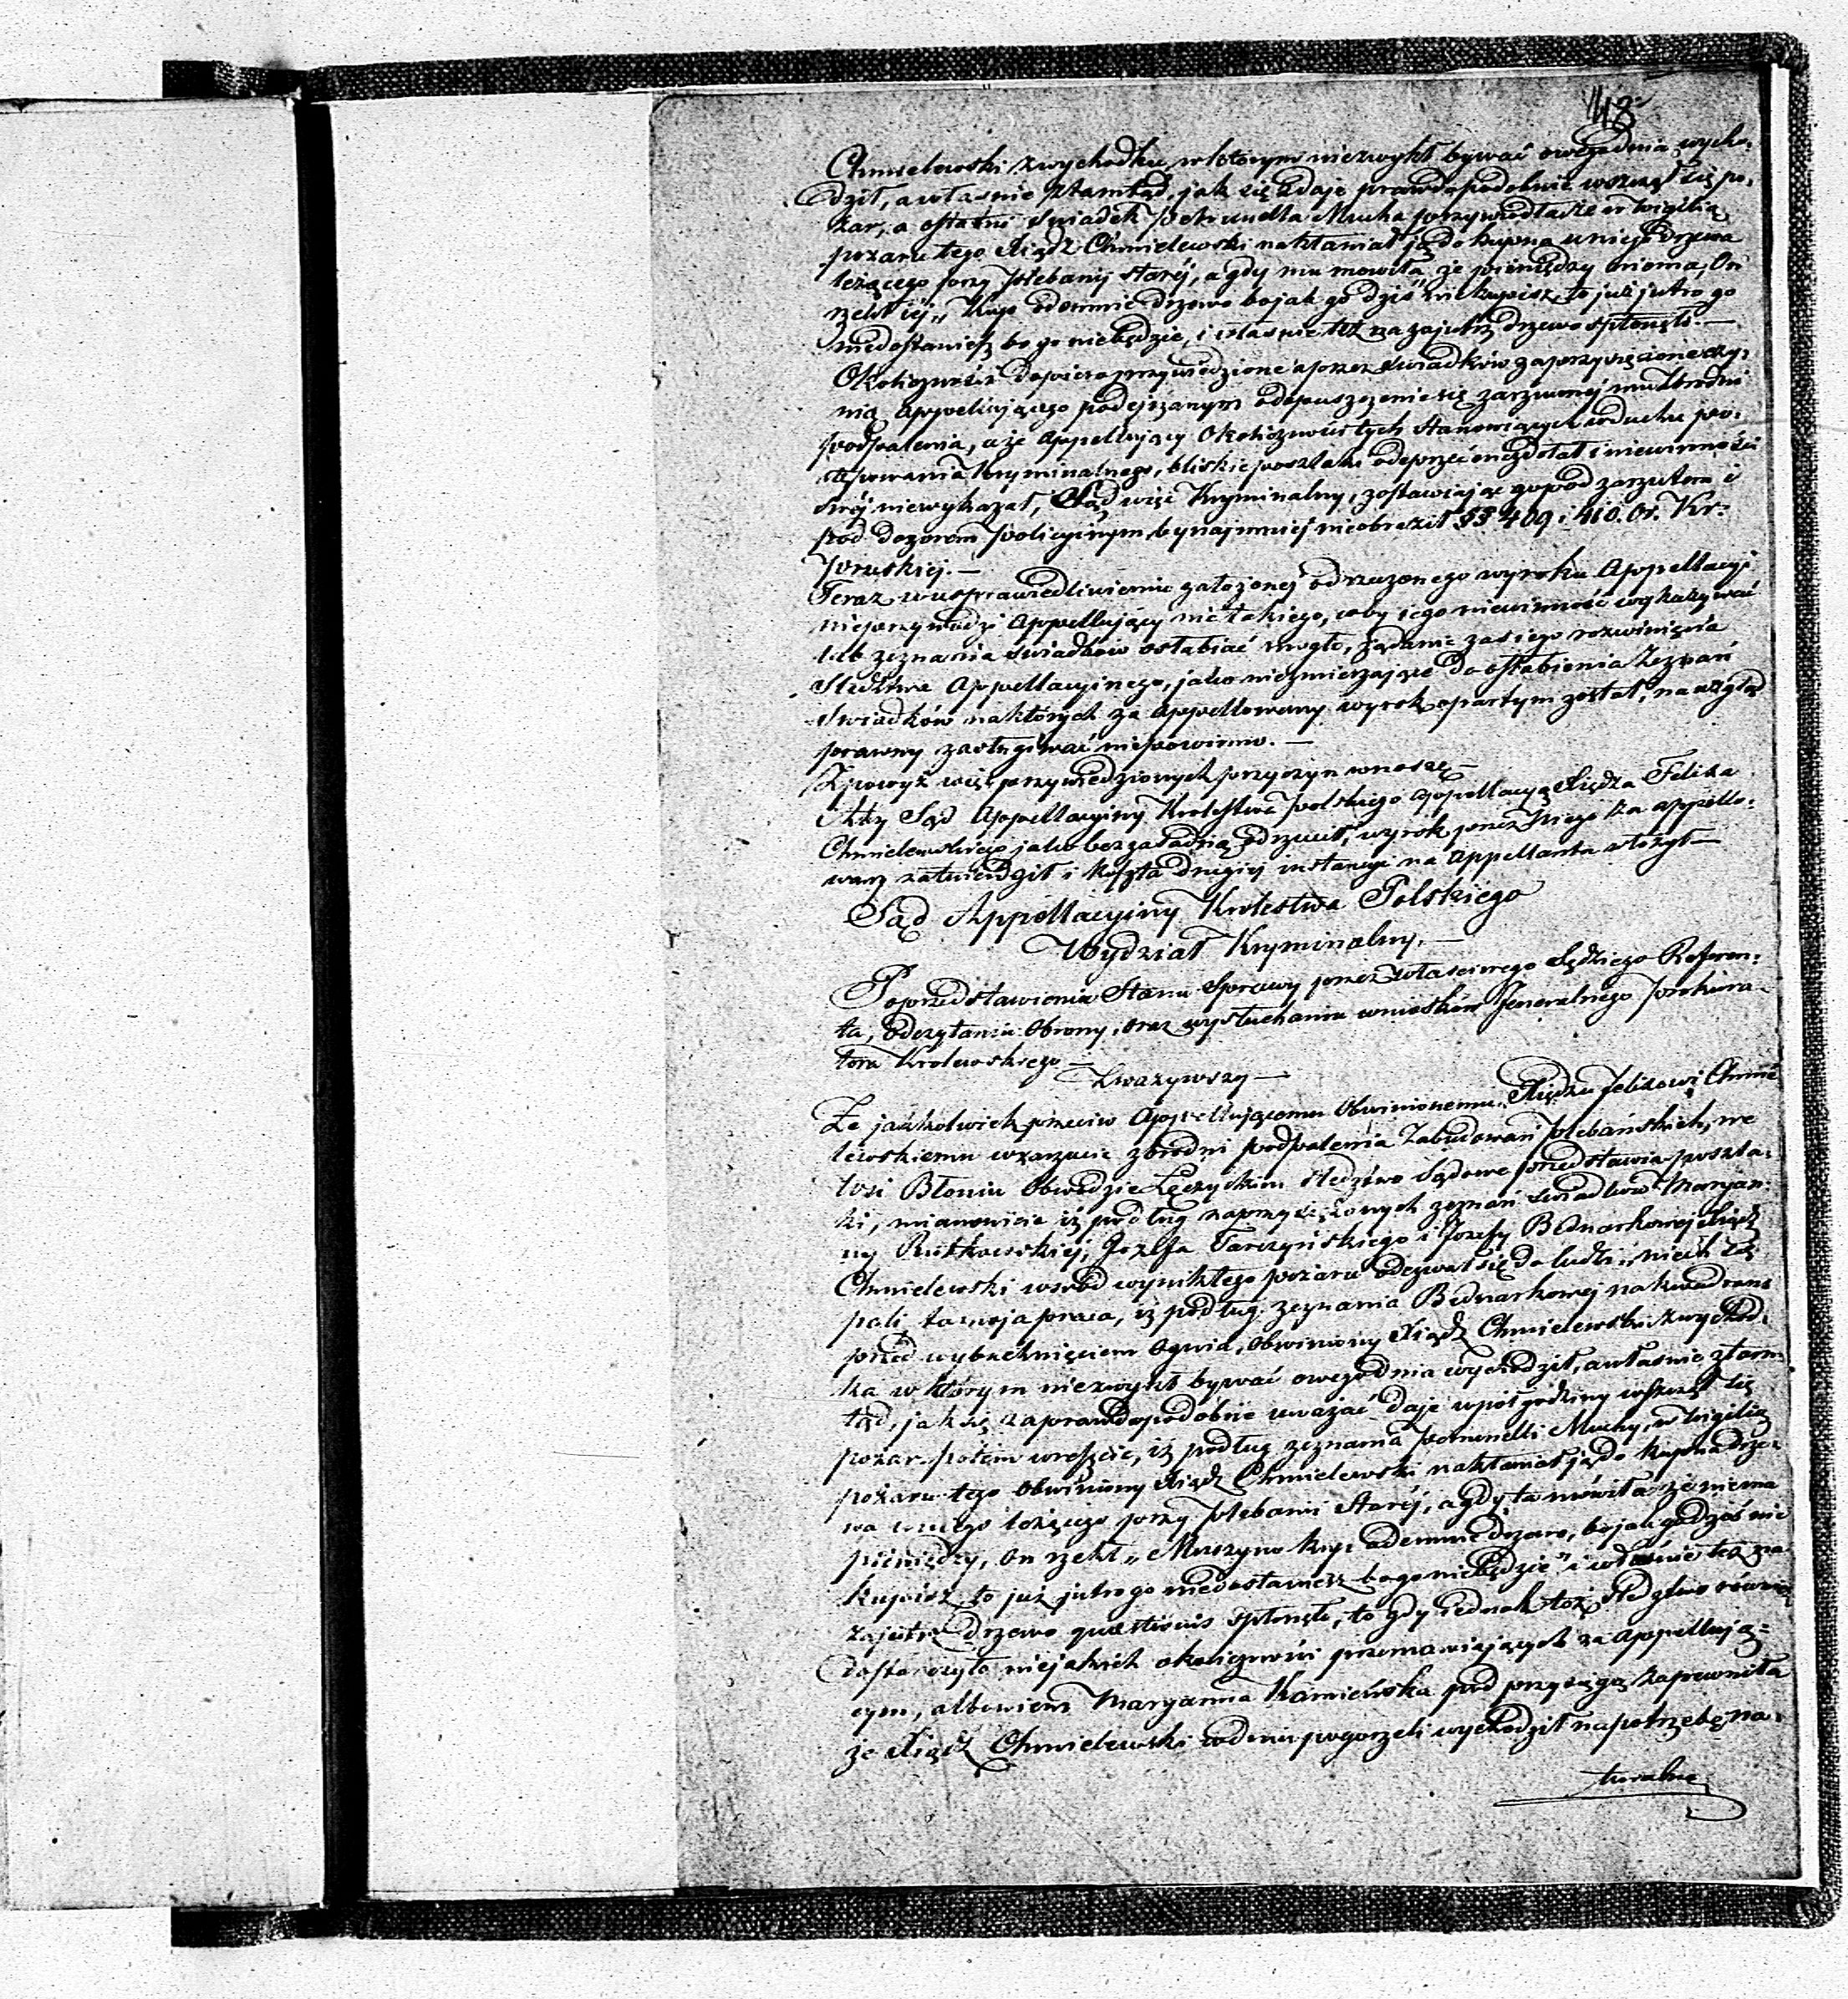 148
Chmielewski z wychodku, w którym niezwykł bywać owego dnia wycho-
dził, a właśnie ztamtąd, jak się zdaje prawdopodobnie wszczął się po-
żar, a ostatni świadek Petrunella Mucha przywiodła że w wigilią
pożaru tego Xiądz Chmielewski nakłaniał ją do kupna u niego drzewa
leżącego przy Plebanij starej, a gdy mu mowiła że pieniędzy niema, On
rzekł iej „Kup odemnie drzewo bo jak go dziś nie kupisz to już jutro go
niedostaniesz bo go niebędzie, i właśnie też nazajutrz drzewo spłonęło. —
Okoliczności dopiero przywiedzione a przez świadków zaprzysiężone czy-
nią appellującego podejrzanym o dopuszczenie się zarzuconej mu zbrodni
podpalenia, a że Appellujący okoliczności tych stanowiących w duchu po-
stępowania Kryminalnego, bliskie poszlaki odeprzeć niezdołał i niewinności
swój niewykazał, Sąd więc Kryminalny, zostawiając go pod zarzutem i
pod dozorem policyjnym bynajmniej nieobraził §§ 409 i 410. Or. Kr:
Pruskiej. —
Teraz w usprawiedliwieniu założonej od rzeczonego wyroku Appellacyi
nieprzywodzi Appellujący nic takiego, coby iego niewinność wykazywać
lub zeznania świadków osłabiać mogło, żądanie zaś iego rozwinięcia
Śledztwa Appellacyinego, jako niezmierzające do osłabienia Zeznań
Świadków na których za appellowany wyrok opartym został, na wzgląd
prawny zasługiwać niepowinno. —
Z powyż więc przywiedzionych przyczyn wnoszę —
Aby Sąd Appellacyiny Królestwa Polskiego appellacyą Xiędza Felixa
Chmielewskiego jako bezzasadną odrzucił, wyrok przez Niego za appello-
wany zatwierdził i koszta drugiej instancyi na appellanta włożył —
Sąd Appellacyiny Królestwa Polskiego
Wydział Kryminalny. —
Po przedstawieniu Stanu Sprawy przez właściwego Sędziego Referen-
ta, odczytaniu obrony, oraz wysłuchaniu wniosków Jeneralnego Prokura-
tora Królewskiego —
Zważywszy —
Że jakkolwiek przeciw Appellującemu Obwinionemu Xiędzu Felixowi Chmie-
lewskiemu w zarzucie zbrodni podpalenia Zabudowań plebańskich, we
wsi Błoniu Obwodzie Łęczyckim śledztwo Sądowe przedstawia poszla-
ki, mianowicie iż podług zaprzysiężonych zeznań świadków Maryan-
ny Rutkowskiej, Józefa Tarczyńskiego i Józefy Bednarkowej Xiądz
Chmielewski wśród wynikłego pożaru odezwał się do ludzi „niech się
pali to moja praca, iż podług zeznania Bednarkowej na kwadrans
przed wybuchnięciem ognia, obwiniony Xiądz Chmielewski z wychod-
ka w którym niezwykł bywać owego dnia wychodził, a właśnie ztam-
tąd, jak się za prawdopodobne uważać daje w pół godziny wszczął się
pożar potém wreszcie, iż podług zeznania Petrunelli Muchy, w wigilią
pożaru tego obwiniony Xiądz Chmielewski nakłaniał ją do kupna drze-
wa u niego leżącego przy plebanii Starej, a gdy ta mówiła że niema
pieniędzy, on rzekł „Muszyno kup odemnie drzewo, bo jak go dziś nie
kupisz to już jutro go niedostaniesz bo go niebędzie” i właśnie też na-
zajutrz drzewo quaestionis spłonęło, to gdy jednak toż śledztwo równie
dostarczyło niejakich okoliczności przemawiających za appellują-
cym, albowiem Maryanna Kamieńska pod przysięgą zapewniła
że Xiądz Chmielewski w dniu pogorzeli wychodził na potrzebę na-
turalną